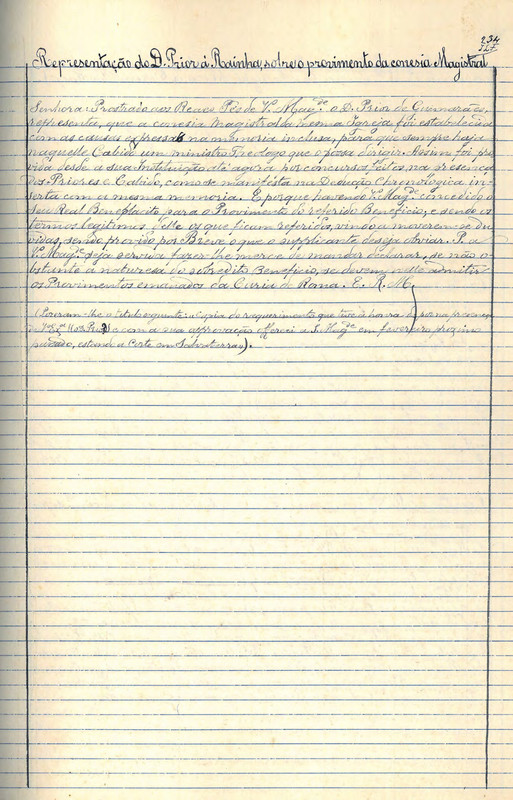 234
Representação do D. Prior á Rainha, sobre o provimento da conesia Magistral
Senhora: Prostrado aos Reaes Pés de V. Mag.de o D. Prior de Guimarães,
representa, que a conesia magistral da mesma Igreja foi estabelecida
com as causas expressas na memoria inclusa, para que sempre haja
naquelle Cabido um ministro Theologo que o possa dirigir. Assim foi pro-
vida desde a sua Instituição até agora por concursos feitos na presença
dos Priores e Cabido, como se manifesta na Deducção Chronologica in-
serta com a mesma memoria. E porque havendo V. Mag.de concedido o
seu Real Beneplacito para o Provimento do referido Beneficio, e sendo os
termos legitimos d'elle os que ficam referidos, vindo a moverem-se du-
vidas, sendo provido por Breve o que o supplicante deseja evitar. P. a
V. Mag.de seja servida fazer-lhe merce de mandar declarar, se não o-
bstante a natureza do sobredito Beneficio, se devem nelle admittir
os Provimentos emanados da Curia de Roma. E. R. M.
copia do requerimento que tive a honra de por na presença
e com a sua approvação offereci a S. Mag.de em fevereiro proximo
passado, estando a Corte em Salvaterra).